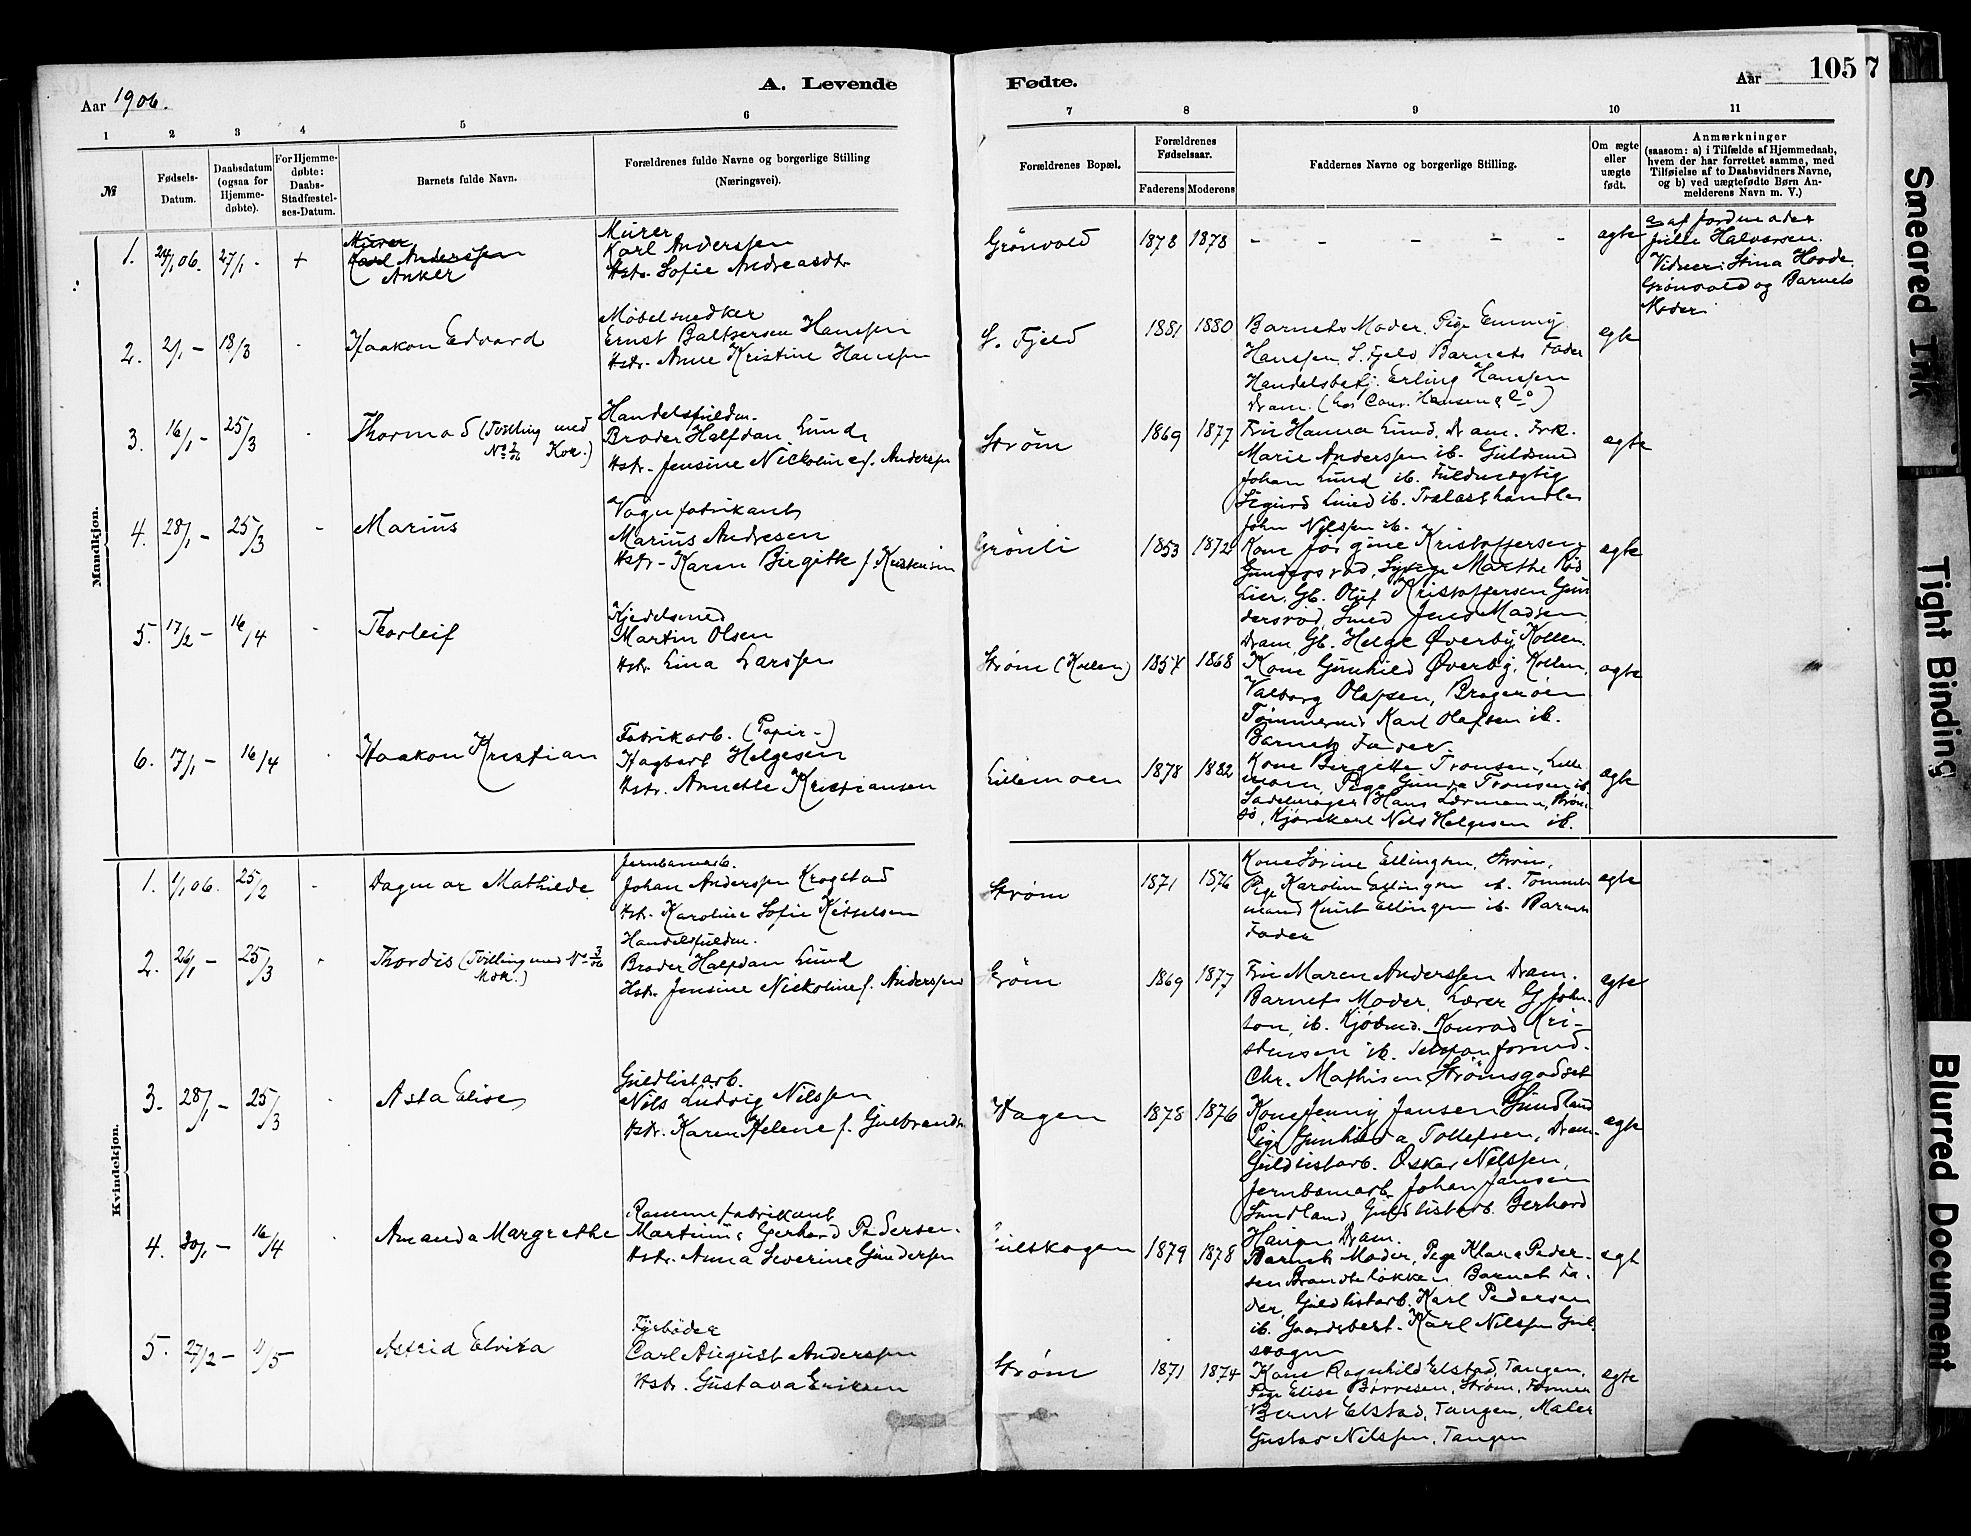 A. Levende
Fødte.
Aar
105
7
Aar 1906.
1
2
3
4
5
6
7
8
9
10
11
№
Fødsels-
Datum.
Daabsdatum
(ogsaa for
Hjemme-
døbte).
For Hjemme-
døbte:
Daabs-
Stadfæstel-
ses-Datum.
Barnets fulde Navn.
Forældrenes fulde Navne og borgerlige Stilling
(Næringsvei).
Forældrenes Bopæl.
Forældrenes
Fødselsaar.
Faderens
Moderens
Faddernes Navne og borgerlige Stilling.
Om ægte
eller
uægte
født.
Anmærkninger
(saasom: a) i Tilfælde af Hjemmedaab,
hvem der har forrettet samme, med
Tilføielse af to Daabsvidners Navne,
og b) ved uægtefødte Børn An-
melderens Navn m. V.)
Mandkjøn.
1. 24/1 06. 27/1 - +
Murer
Karl Anderssen
Anker
Murer
Karl Anderssen
Hstr. Sofie Andreasdtr.
Grönvold 1878 1878 - - - - - ægte
a) af Jordmoder
Julie Halvorsen.
Vidner: Stina Hovde
Grönvold og Barnets
Moder.
2. 2/1 - 18/3 - Haakon Edvard
Möbelsnedker
Ernst Baltzersen Hanssen
Hstr. Anne Kristine Hanssen
S. Fjeld 1881 1880
Barnets Moder, Pige Emmy
Hanssen, S. Fjeld, Barnets Fader
Handelsbetj. Erling Hanssen
Dram. (hos Conr. Hansen & Co)
egte
3. 16/1 - 25/3 - Thormod (Tvilling med
No 2/06 Kvk.)
Handelsfuldm.
Broder Halfdan Lund
Hstr. Jensine Nickoline f. Anderssen
Ström 1869 1877
Fru Hanna Lund, Dram. Frk.
Marie Anderssen ib. Guldsmed
Johan Lund ib. Fuldmægtig
Sigurd Lund ib. Trælasthandler
John Nilssen ib.
ægte
4. 28/1 - 25/3 - Marius
Vognfabrikant
Marius Andresen
Hstr. Karen Birgitte f. Kristensen
Grönli 1853 1872
Kone Jörgine Kristoffersen,
Gundersrød, Sypige Marthe Rød
Lier, Gb. Oluf Kristoffersen Gun
dersrød, Smed Jens Madsen
Dram, Gb. Helge Överby, Kollen.
ægte
5. 17/2 - 16/4 - Thorleif
Kjedelsmed
Martin Olsen
Hstr. Lina Larssen
Ström (Kollen) 1854 1868
Kone Gunhild Överby, Kollen,
Valborg Olafsen, Bragerøen
Tömmermd Karl Olafsen ib.
Barnets Fader.
ægte
6. 17/1 - 16/4 - Haakon Kristian
Fabrikarb. (Papir-)
Hagbart Helgesen
Hstr. Annette Kristiansen
Lillemoen 1878 1882
Kone Birgitte Tronsen, Lille
moen, Pige Gunda Tronsen ib.
Sadelmager Hans Lærmann, Ström-
sö, Kjörekarl Nils Helgesen ib.
ægte
Kvindekjøn.
1. 1/1 06. 25/2 - Dagmar Mathilde
Jernbanearb.
Johan Anderssen Krogstad
Hstr. Karoline Sofie Ketselsen
Ström 1871 1876
Kone Sörine Ellingsen, Ström,
Pige Karoline Ellingsen ib. Tömmer
mand Knut Ellingsen ib. Barnets
Fader
ægte
2. 26/1 - 25/3 - Thordis (Tvilling med No 3/06
Mdk.)
Handelsfuldm.
Broder Halfdan Lund
Hstr. Jensine Nickoline f. Anderssen
Ström 1869 1877
Fru Maren Anderssen Dram.
Barnets Moder, Lærer G. John-
son, ib. Kjöbmd. Konrad Kri-
stensen ib. Telefonformd.
Chr. Mathisen Strömsgodset
ægte
3. 28/1 - 25/3 - Asta Elise
Guldlistarb.
Nils Ludvig Nilssen
Hstr. Karen Helene f. Gulbrands.
Hagen 1878 1876
Kone Jenny Jansen Sundland
Pige Gunhilda Tollefsen, Dram.
Guldlistarb. Oskar Nilssen,
Jernbanearb. Johan Jansen
Sundland, Guldlistarb. Berhard
Haugen Dram.
ægte
4. 30/1 - 16/4 - Amanda Margrethe
Rammefabrikant
Martinius Gerhard Pedersen.
Hstr. Anna Severine Gundersen
Gulskogen 1879 1878
Barnets Moder, Pige Klara Peder-
sen Brandtelökken, Barnets Fa-
der, Guldlistarb. Karl Pedersen
ib. Gaardsbest. Karl Nilssen Gul
skogen
egte
5. 27/2 - 11/5 Astrid Elvira
Fyrböder
Carl August Anderssen
Hstr. Gustava Eriksen
Ström 1871 1874
Kone Ragnhild Elstad, Tangen,
Pige Elise Börresen, Ström, Former
Bernt Elstad, Tangen, Maler
Gustav Nilssen, Tangen
ægte
Smeared Ink
Tight Binding
Blurred Document